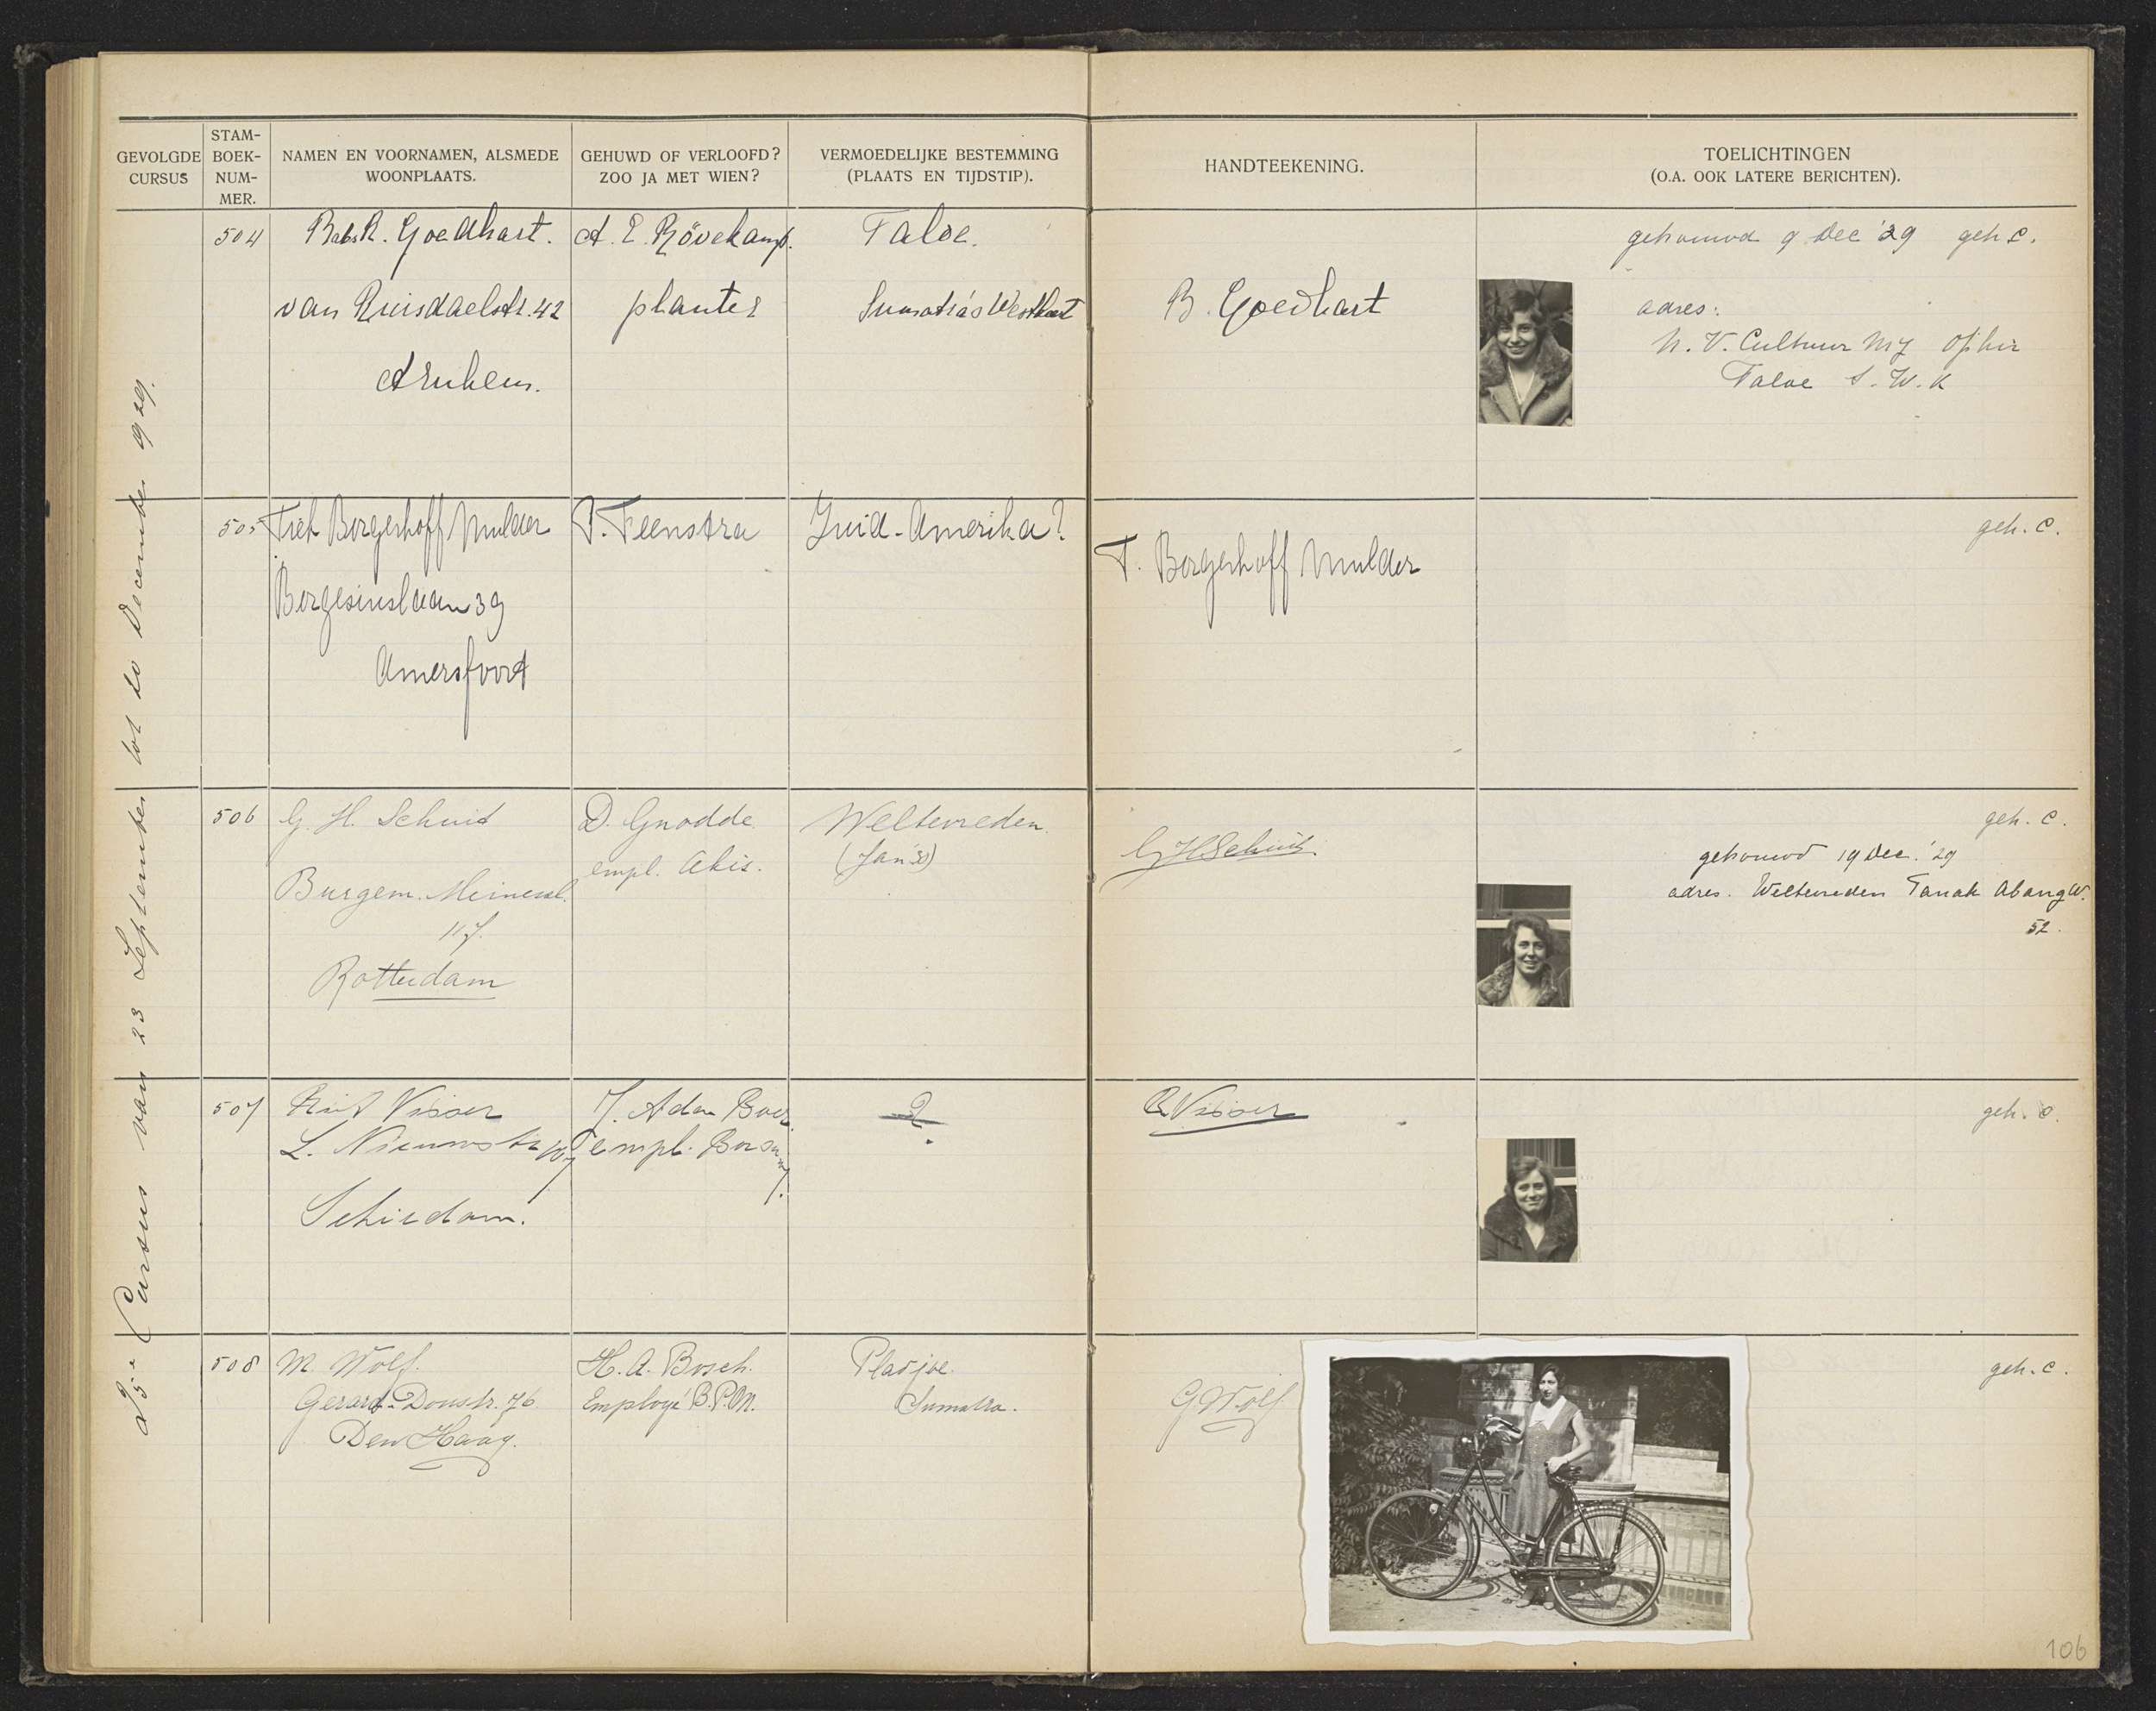 GEVOLGDE CURSUS
STAM-BOEK-NUM-MER.
NAMEN EN VOORNAMEN, ALSMEDE WOONPLAATS.
GEHUWD OF VERLOOFD? ZOO JA MET WIEN?
VERMOEDELIJKE BESTEMMING (PLAATS EN TIJDSTIP).
HANDTEEKENING.
TOELICHTINGEN (O.A. OOK LATERE BERICHTEN).
25e Cursus van 23 September tot 20 December 1929.
504
Babs R. Goedhart.
van Ruisdaelstr. 42
Arnhem.
A. E. Rövekamp.
planter
Taloe.
Sumatra's Westkust
B. Goedhart
gehuwd 9 Dec '29 geh. C.
adres:
N.V. Cultuur Mij Ophir
Taloe S.W.K
505
Borgerhoff Mulder
39
Amersfoort
T. Feenstra
Zuid-Amerika?
T. Borgerhoff Mulder
geh. C.
506
G. H. Schuit
Burgem. Meinesl.
117.
Rotterdam
D. Gnodde
empl.
Weltevreden.
(Jan '30)
G H Schuit.
geh. C.
gehuwd 19 Dec. '29
adres. Weltevreden Tanah Abang W.
52.
507
Visser
L. Nieuwstr
Schiedam.
empl.
?
R Visser
geh. C.
508
M. Wolf.
Gerard Doustr. 76
Den Haag.
H. A. Bosch.
Employé B.P.M.
Pladjoe.
Sumatra.
G Wolf
geh. C.
106